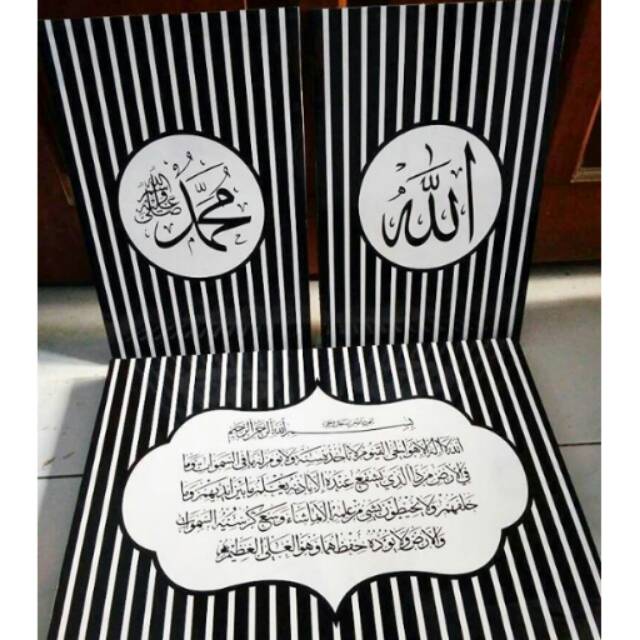 الله
محمد
صلى الله عليه وسلم
بسم الله الرحمن الرحيم
الله لا اله الا هو الحي القيوم لا تاخذه سنة ولا نوم له ما في السموات وما
في الارض من ذا الذي يشفع عنده الا باذنه يعلم ما بين ايديهم وما
خلفهم ولا يحيطون بشيء من علمه الا بما شاء وسع كرسيه السموات
والارض ولا يؤده حفظهما وهو العلي العظيم